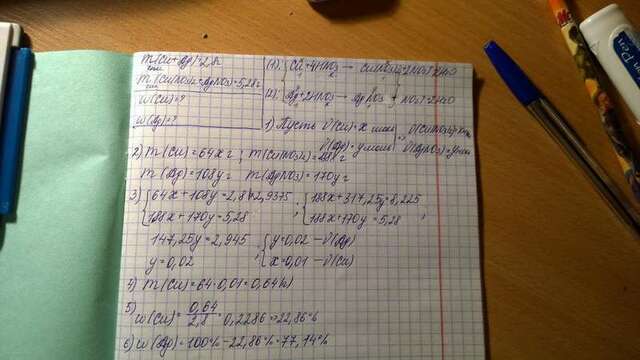 m(Cu+Ag)=2,8г
m(Cu(NO3)2+AgNO3)=5,28г
w(Cu)=?
w(Ag)=?
(1). Cu+4HNO3 → Cu(NO3)2+2NO2+2H2O
(2). Ag+2HNO3 → AgNO3 + NO2+H2O
1) Пусть ν(Cu)=x моль, ν(Cu(NO3)2)=x моль
ν(Ag)=y моль ν(AgNO3)=y моль
2) m(Cu)=64x г; m(Cu(NO3)2)=188x г
m(Ag)=108y г m(AgNO3)=170y г
3) 64x+108y=2,8 |·2,9375 ; 188x+317,25y=8,225
188x+170y=5,28 ; 188x+170y=5,28 ;
147,25y=2,945 y=0,02 – ν(Ag)
y=0,02 ; x=0,01 – ν(Cu)
4) m(Cu)=64·0,01=0,64(г)
5) w(Cu)=0,64/2,8=0,2286=22,86%
6) w(Ag)=100%-22,86%=77,14%
Pen